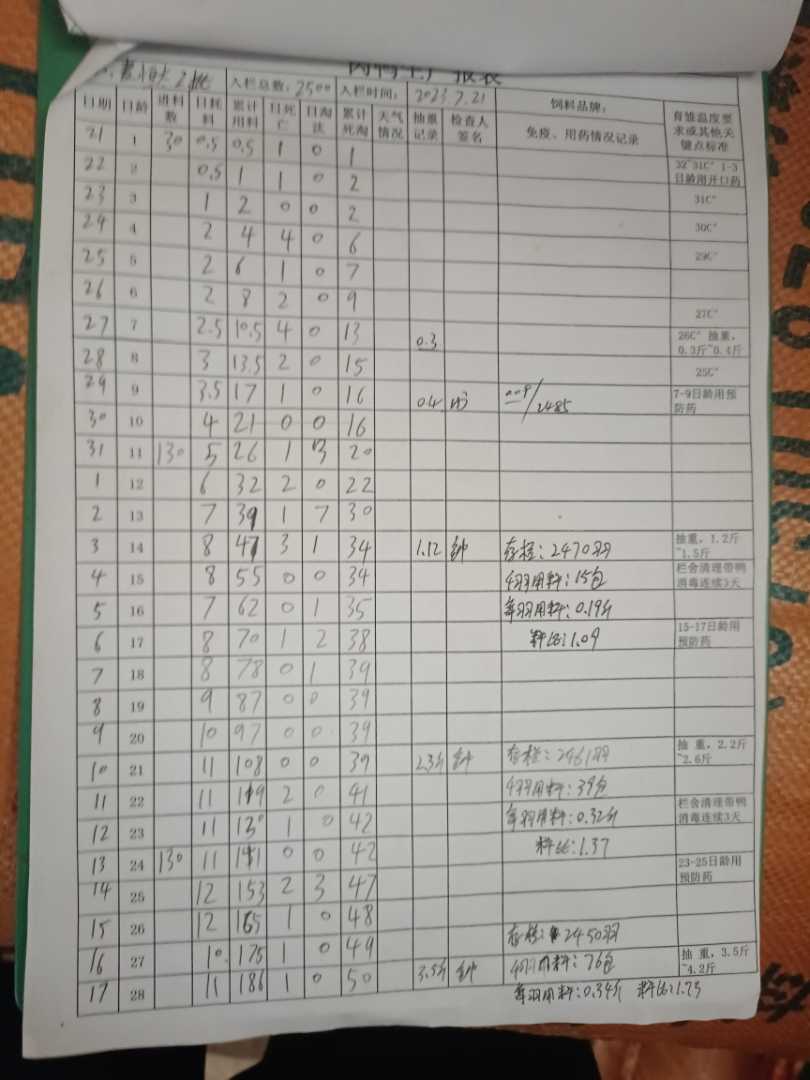 肉鸭生产报表
入栏总数：2500 入栏时间：2023.7.21 饲料品牌：
日期 日龄 进料数 日耗料 累计用料 日死亡 日淘汰 累计死淘 天气情况 抽重记录 检查人签名 免疫、用药情况记录 育雏温度要求或其他关键点标准
21 1 30 0.5 0.5 1 0 1
22 2 0.5 1 1 0 2 32~31C° 1-3日龄用开口药
23 3 1 2 0 0 2 31C°
24 4 2 4 4 0 6 30C°
25 5 2 6 1 0 7 29C°
26 6 2 8 2 0 9 27C°
27 7 2.5 10.5 4 0 13 0.3 26C° 抽重，0.3斤~0.4斤
28 8 3 13.5 2 0 15 25C°
29 9 3.5 17 1 0 16 0.4 2485 7-9日龄用预防药
30 10 4 21 0 0 16
31 11 130 5 26 1 3 20
1 12 6 32 2 0 22
2 13 7 39 1 7 30
3 14 8 47 3 1 34 1.12 钟 存栏：2470羽 抽重，1.2斤~1.5斤
4 15 8 55 0 0 34 千羽用料：15包 栏舍清理带鸭消毒连续3天
5 16 7 62 0 1 35 每羽用料：0.19斤
6 17 8 70 1 2 38 料比：1.09 15-17日龄用预防药
7 18 8 78 0 1 39
8 19 9 87 0 0 39
9 20 10 97 0 0 39
10 21 11 108 0 0 39 2.3斤 钟 存栏：2461羽 抽重，2.2斤~2.6斤
11 22 11 119 2 0 41 千羽用料：39包
12 23 11 130 1 0 42 每羽用料：0.32斤 栏舍清理带鸭消毒连续3天
13 24 130 11 141 0 0 42 料比：1.37
14 25 12 153 2 3 47 23-25日龄用预防药
15 26 12 165 1 0 48 存栏：2450羽
16 27 10 175 1 0 49 千羽用料：76包 抽重，3.5斤~4.2斤
17 28 11 186 1 0 50 3.5斤 钟
每羽用料：0.34斤 料比：1.75